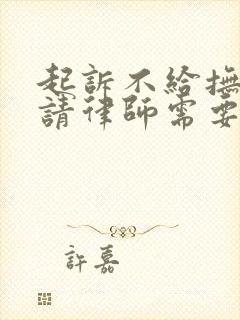 起訴不給撫
請律師需要
許嘉